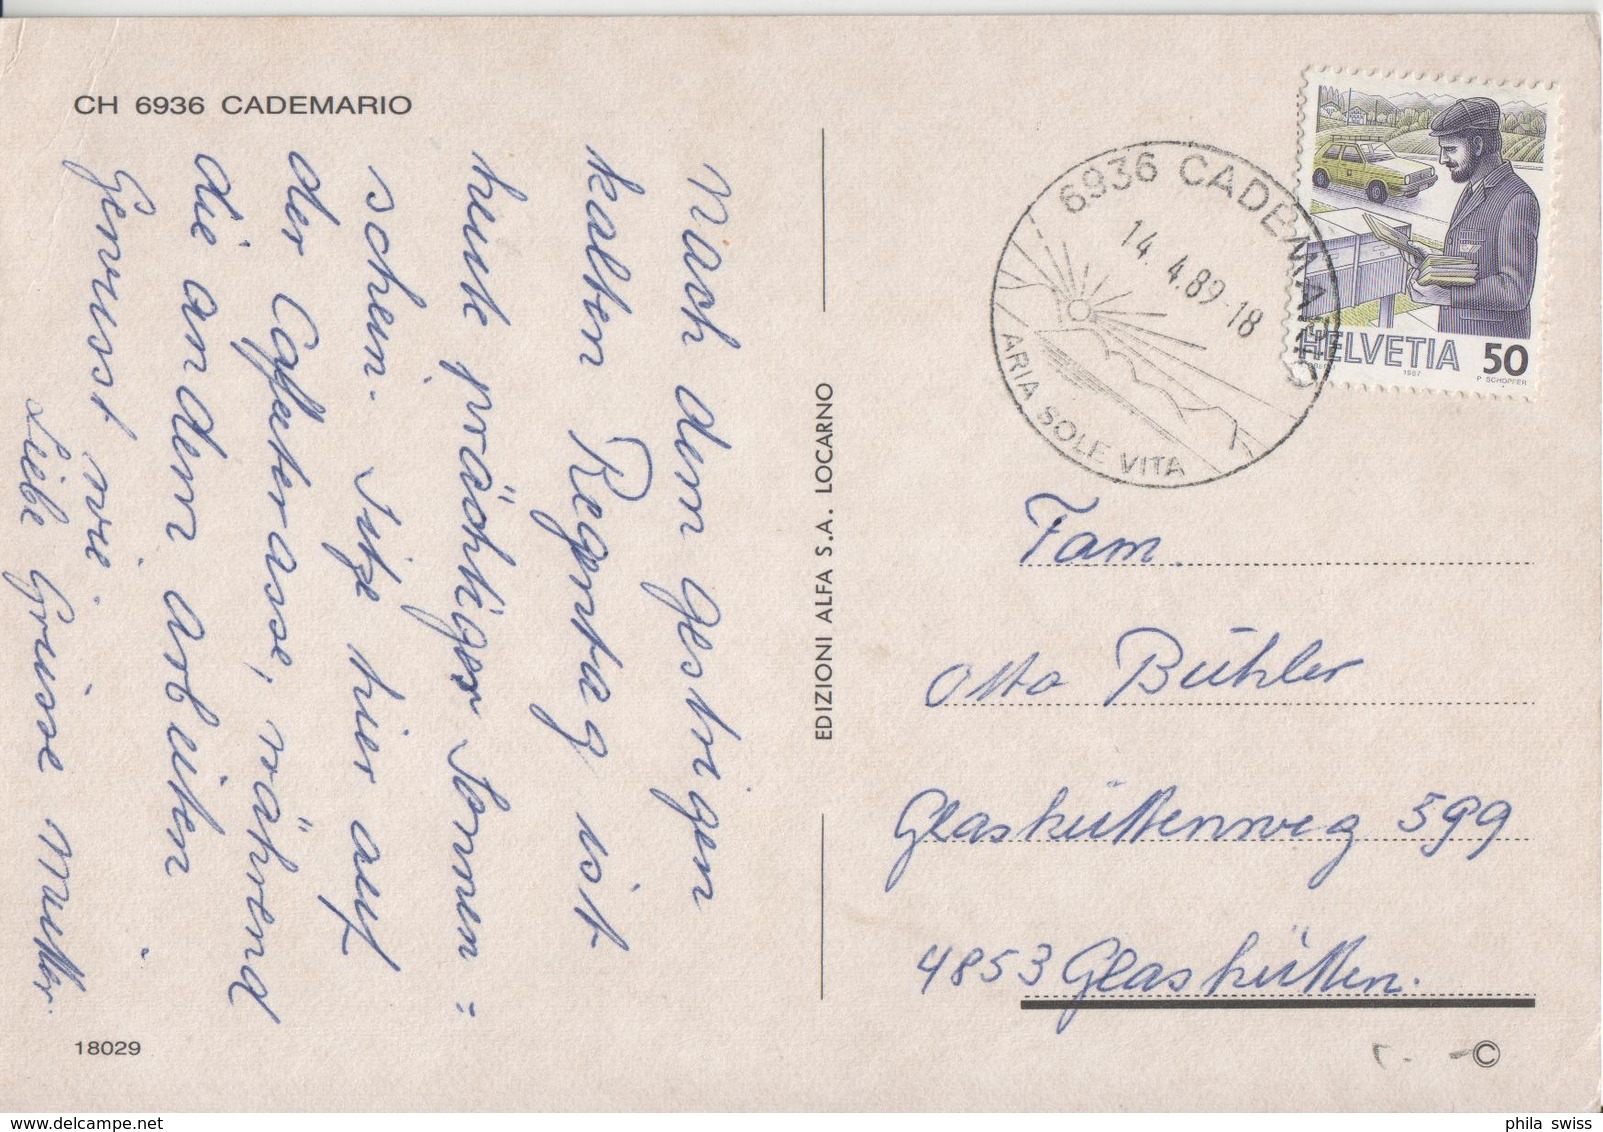 CH 6936 CADEMARIO
Nach dem gestrigen
kalten Regentag ist
heute prächtiger Sonnen=
schein. Sitze hier auf
der Caffeterasse, während
die andern arbeiten
Genuss wie nie.
Liebe Grüsse Mutter.
18029
EDIZIONI ALFA S.A. LOCARNO
6936 CADEMARIO
14.4.89-18
ARIA SOLE VITA
HELVETIA 50
1987
P SCHOPFER
Fam.
Otto Bühler
Glashüttenweg 599
4853 Glashütten.
©
phila swiss